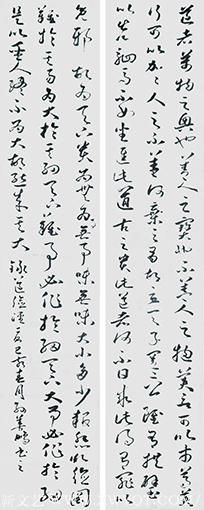 道者萬物之奧也善人之寶也不善人之所保美言可以市尊美
行可以加人人之不善何棄之有故立天子置三公雖有拱璧
以先駟馬不如坐進此道古之貴此道者何不曰求以得有罪
免邪故為天下貴為無為事無事味無味大小多少報怨以德
難於其易為大於其細天下難事必作於易天下大事必作於細
是以聖人終不為大故能成其大錄道德經春月書之
新文艺